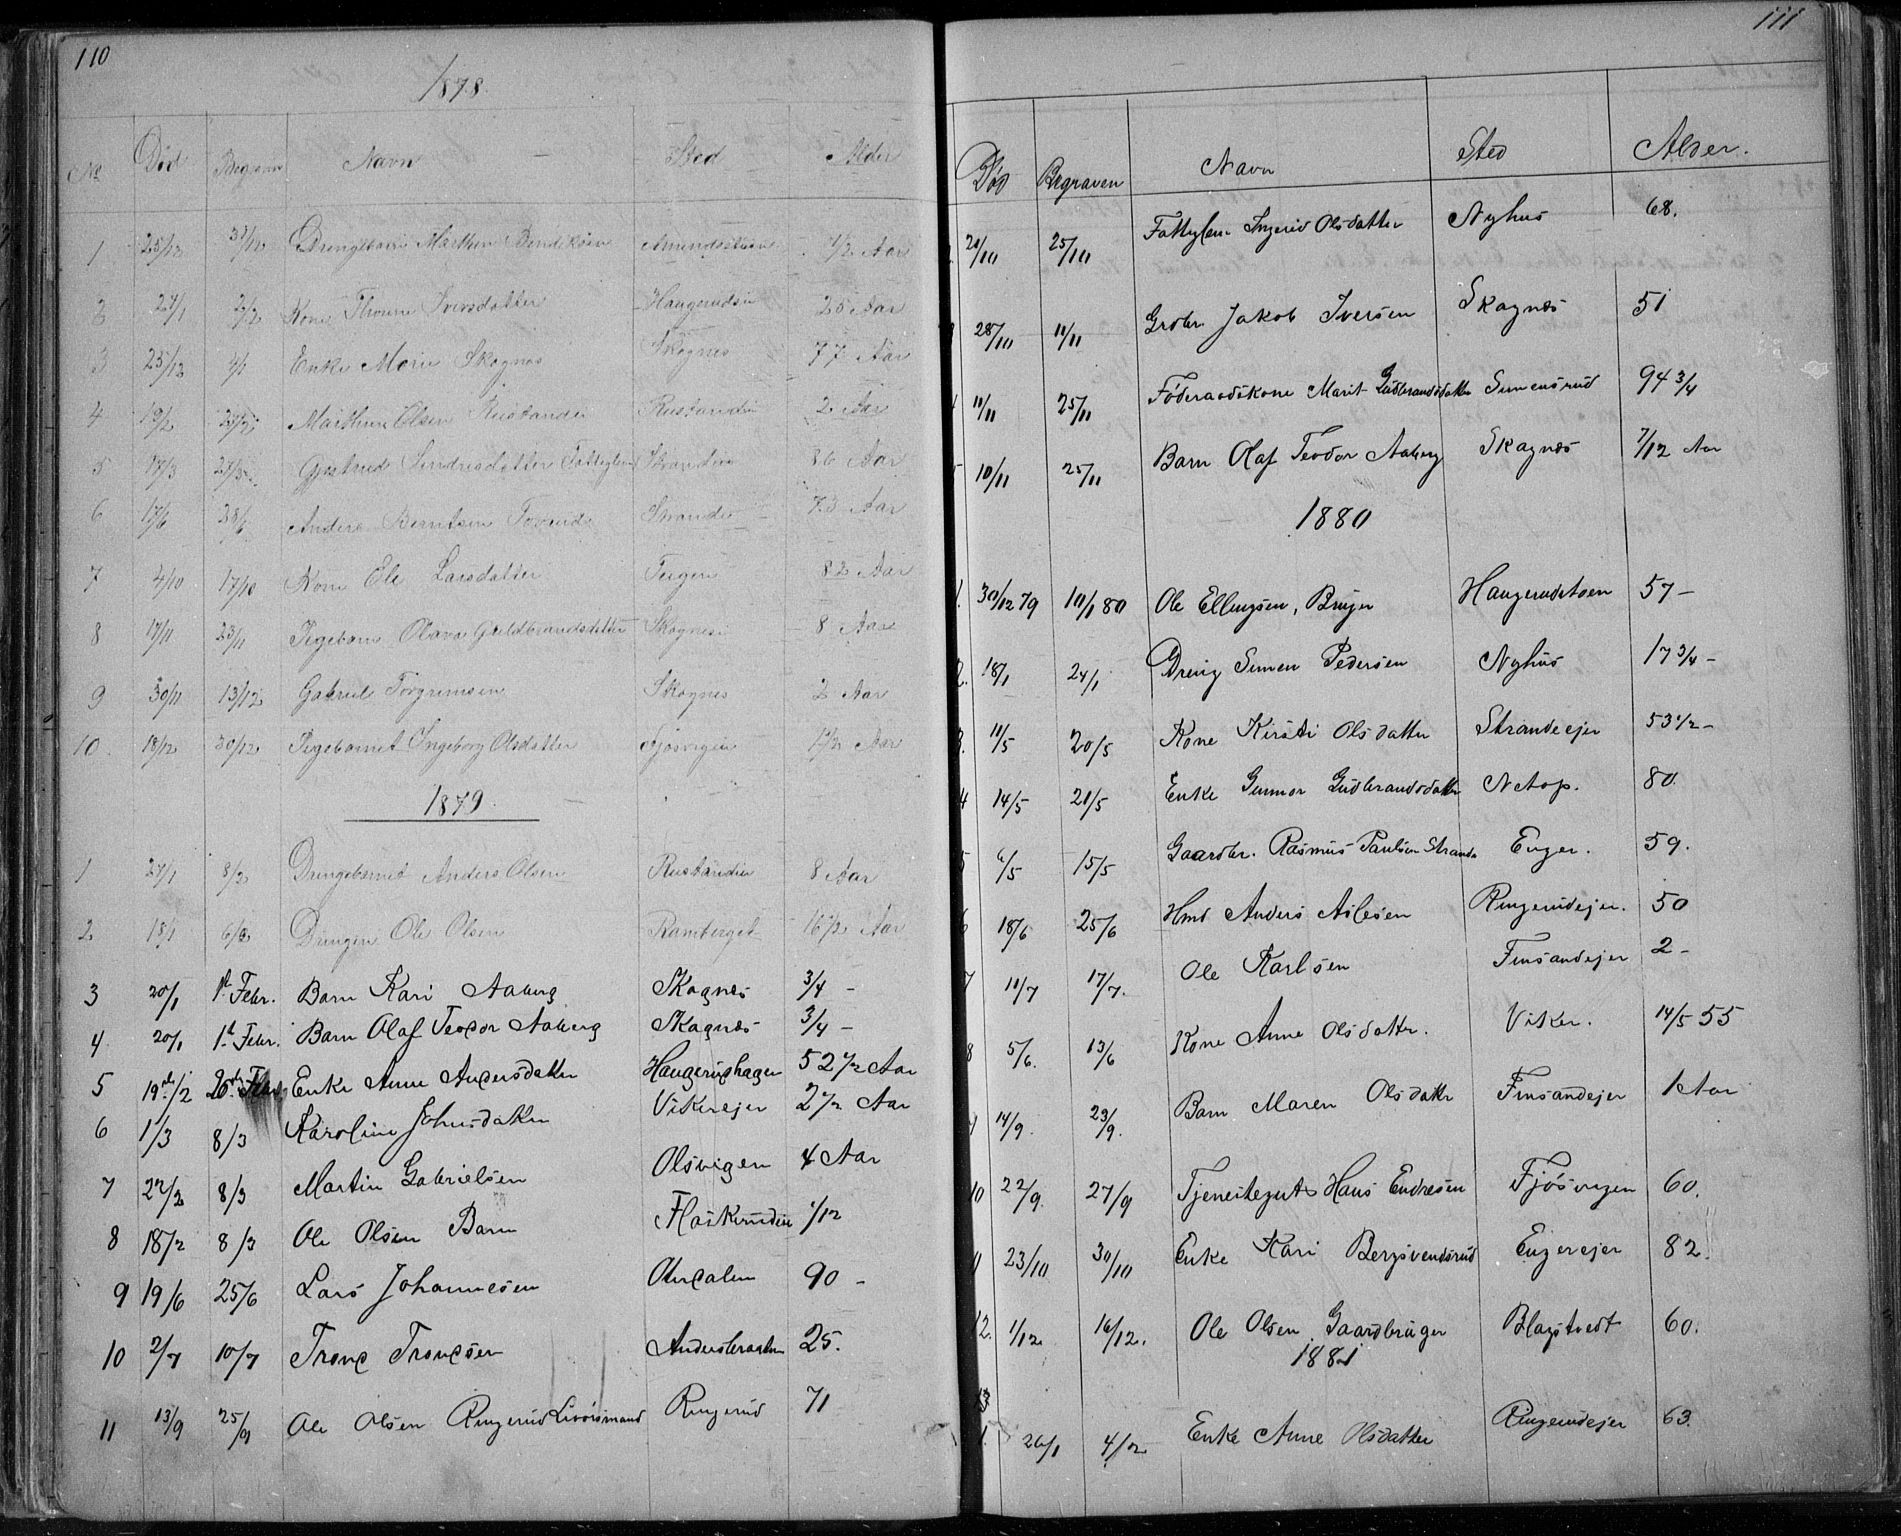 110
1878
No Død Begraven Navn Sted Alder
1 25/12 31/12 Drengebarn Marthin Bendiksen 1/2 Aar
2 24/1 2/2 Kone Thorine Iversdatter Haugerudsei 25 Aar
3 23/12 4/1 Enke Marie Skognes Skognes 77 Aar
4 19/2 Marthin Olsen Rustandei Rustandei 2 Aar
5 17/3 27/3 Gjertrud Sindresdatter Fattiglem Strandei 36 Aar
6 17/6 23/6 Anders Berntsen Strande 73 Aar
7 4/10 17/10 Kone Eli Larsdatter 82 Aar
8 17/11 23/11 Pigebarn Olava Guldbrandsdatter Skognes 8 Aar
9 30/11 13/12 Gabriel Torgrimsen Skognes 2 Aar
10 18/12 30/12 Pigebarnet Ingeborg Olsdatter Fjøsvigen 1 1/2 Aar
1879
1 27/1 8/2 Drengebarnet Anders Olsen Rustandei 8 Aar
2 13/1 6/2 Drengen Ole Olsen Ramberget 16 1/2 Aar
3 20/1 1st Febr. Barn Kari Aaberg Skagnæs 3/4 -
4 20/1 1st Febr. Barn Olaf Teodor Aaberg Skagnæs 3/4 -
5 19de/2 Enke Anne Andersdatter Haugerudhagen 52 1/2 Aar
6 1/3 8/3 Karoline Johnsdatter Vikerejer 2 1/2 Aar
7 22/2 8/3 Martin Gabrielsen Olsvigen 4 Aar
8 18/2 8/3 Ole Olsen Barn Flaskerudei 1/12
9 19/6 25/6 Lars Johannesen Oterdalen 90 -
10 2/7 10/7 Trond Trondsen Andersbraaten 25.
11 13/9 25/9 Ole Olsen Ringerud Livørsmand Ringerud 71
111
Død Begraven Navn Sted Alder.
20/10 25/10 Fattiglem Ingerid Olsdatter Nyhus 68.
28/10 11/11 Grdbr. Jakob Iversen Skagnæs 51
11/11 25/11 Föderaadskone Marit Gudbrandsdatter Simensrud 94 3/4
10/11 25/11 Barn Olaf Teodor Aaberg Skagnæs 7/12 Aar
1880
1. 30/12 79 10/1 80 Ole Ellingsen, Bruger Haugerudstøen 57 -
2. 18/1 24/1 Dreng Simen Pedersen Nyhus 17 3/4 -
3. 11/5 20/5 Kone Kirsti Olsdatter Strandeejer 53 1/2 -
4 14/5 21/5 Enke Gunnor Gudbrandsdatter Netop. 80.
5 6/5 15/5 Gaardbr. Rasmus Paulsen Strande Enger. 59.
6 18/6 25/6 Hmd Anders Aslesen Ringerudejer. 50
7 11/7 17/7. Ole Karlsen Finsandejer 2 -
8 5/6. 13/6 Kone Anne Olsdatter. Viker. 14/5 55
9 14/9. 23/9. Barn Maren Olsdatter Finsandejer 1 Aar
10 22/9. 27/9 Tjenestegut Hans Endresen Fjösvigen 60.
11 23/10 30/10 Enke Kari Bergsvendsrud Engerejer 82.
12. 1/12 16/12. Ole Olsen Gaardbruger Blagstvedt 60.
1881
1. 26/1 4/2 Enke Anne Olsdatter Ringerudejer 63.